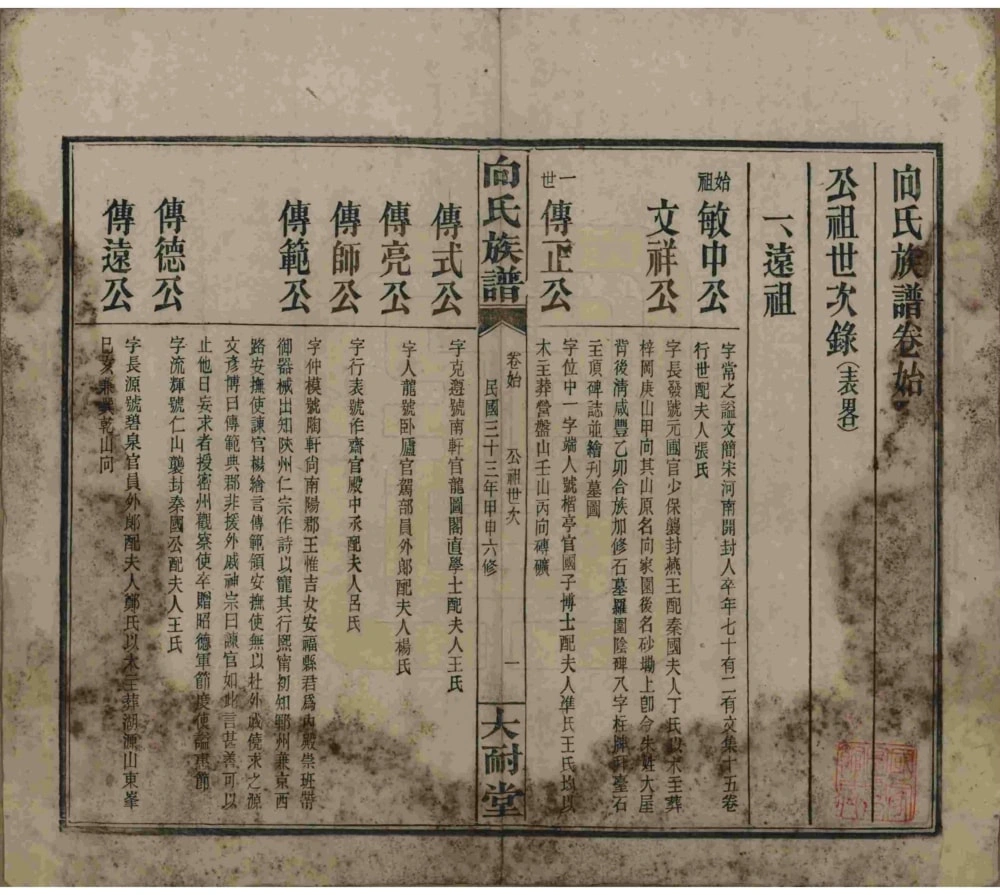 向氏族譜卷始
公祖世次錄(表畧)
一、遠祖
始祖
敏中公
字常之謚文簡宋河南開封人卒年七十有二有文集十五卷
行世配夫人張氏
文祥公
字長發號元圃官少保襲封燕王配秦國夫人丁氏以木主葬
梓岡庚山甲向其山原名向家園後名砂塝上卽今朱姓大屋
背後清咸豐乙卯合族加修石墓羅圍陰碑八字柱牌祠臺石
主項碑誌並繪刋墓圖
一世
傳正公
字位中一字端人號楷亭官國子博士配夫人準氏王氏均以
木主葬營盤山壬山丙向磚礦
向氏族譜
卷始
公祖世次
民國三十三年甲申六修
一
大耐堂
傳式公
字克遵號南軒官龍圖閣直學士配夫人王氏
傳亮公
字人龍號卧廬官駕部員外郞配夫人楊氏
傳師公
字行表號作齋官殿中丞配夫人呂氏
傳範公
字仲模號陶軒尙南陽郡王惟吉女安福縣君爲內殿崇班帶
御器械出知陝州仁宗作詩以寵其行熙甯初知鄆州兼京西
路安撫使諫官楊繪言傳範領安撫使無以杜外戚僥求之源
文彥博曰傳範典郡非援外戚神宗曰諫官如此言甚善可以
止他日妄求者授密州觀察使卒贈昭德軍節度使謚惠節
傳德公
字流輝號仁山襲封秦國公配夫人王氏
傳遠公
字長源號碧泉官員外郞配夫人鄭氏以木主葬湖源山東峯
巳亥兼巽乾山向